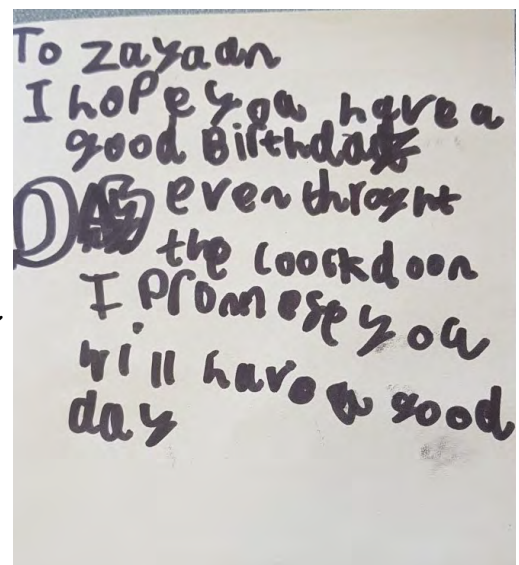 To Zayaan
I hope you have a
good Birthday
even throght
the coockdoon
I promese you
will have a good
day